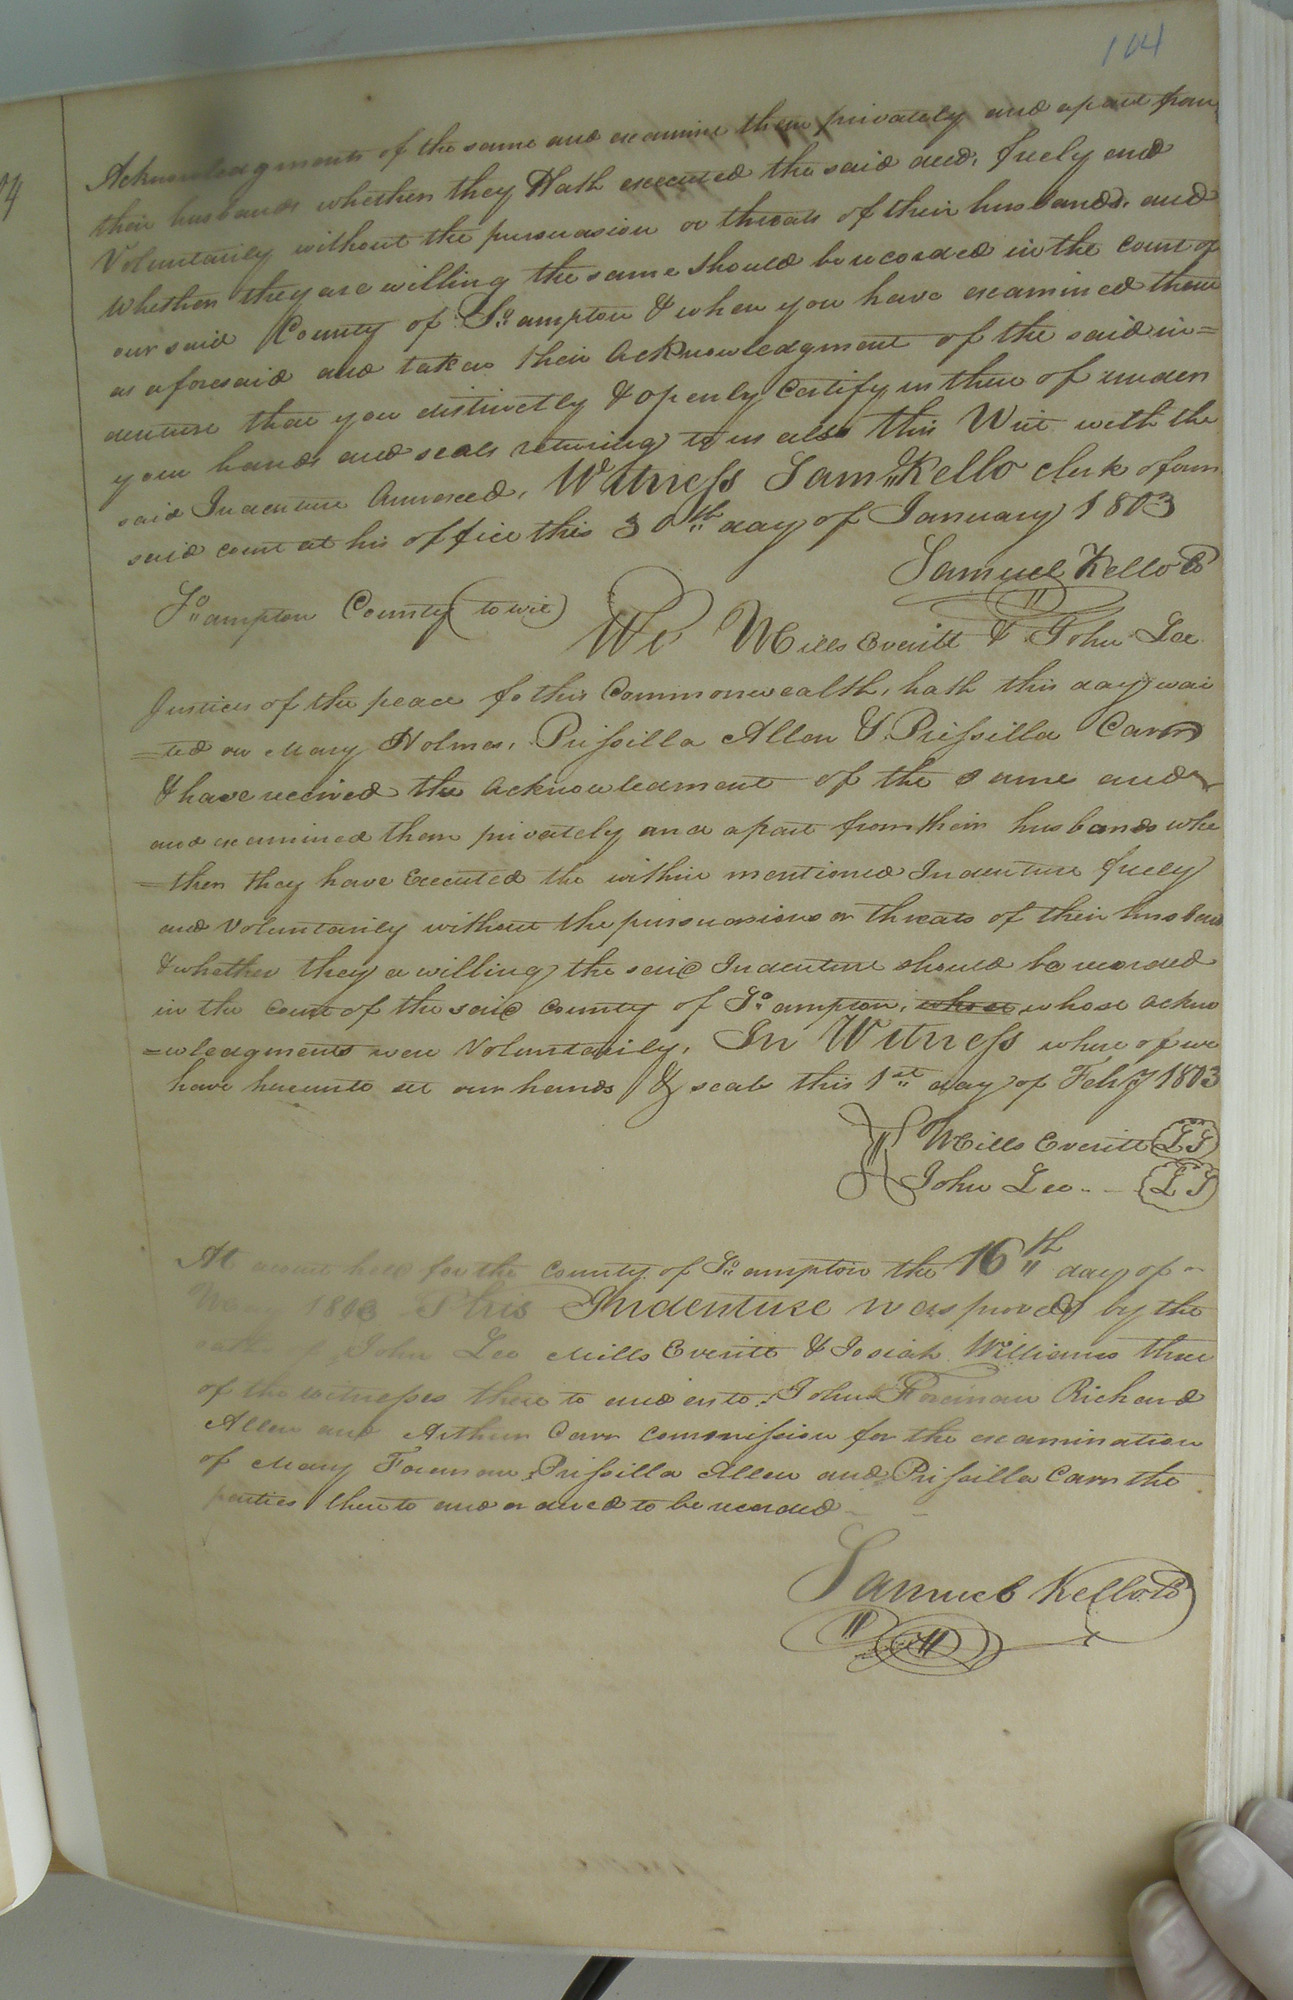 104
Acknowledgments of the same and examine them privately and apart from
their husbands whether they Hath executed the said deed, freely and
Voluntarily without the pursuasion or threats of their husbands, and
Whether they are willing the same should be recorded in the Court of
our said County of So. ampton & when you have examined them
as aforesaid and taken their Acknowledgment of the said in=
denture that you distinctly & openly Certify us thereof under
your hands and seals returning to us also this Writ with the
said Indenture Annexed, Witness Saml. Kello Clerk of our
said court at his office this 30th day of January 1803
Samuel Kello
So. ampton County (to wit) We Mills Everitt & John Lee
Justices of the peace fo this Commonwealth, hath this day wai
=ted on Mary Holmes, Prissilla Allen & Prissilla Carr
& have received the Acknowledgment of the same and
and examined them privately and apart from their husbands whe
=ther they have Executed the within mentioned Indenture freely
and Voluntarily without the pursuasions or threats of their husband
& whether they a willing the said Indenture should be recorded
in the Court of the said County of So. ampton, whose whose Ackno
=wledgments were Voluntarily, In Witness where of we
have hereunto set our hands & seals this 1st day of Feby 1803
Mills Everitt LS
John Lee - - LS
At a court held for the County of So. ampton the 16th day of
May 1803 This Indenture was proved by the
oaths of John Lee Mills Everitt & Josiah Williams three
of the witnesses there to and as to John Foreman Richard
Allen and Arthur Carr commission for the examination
of Mary Foreman, Prissilla Allen and Prissilla Carr the
parties there to and ordered to be recorded
Samuel Kello